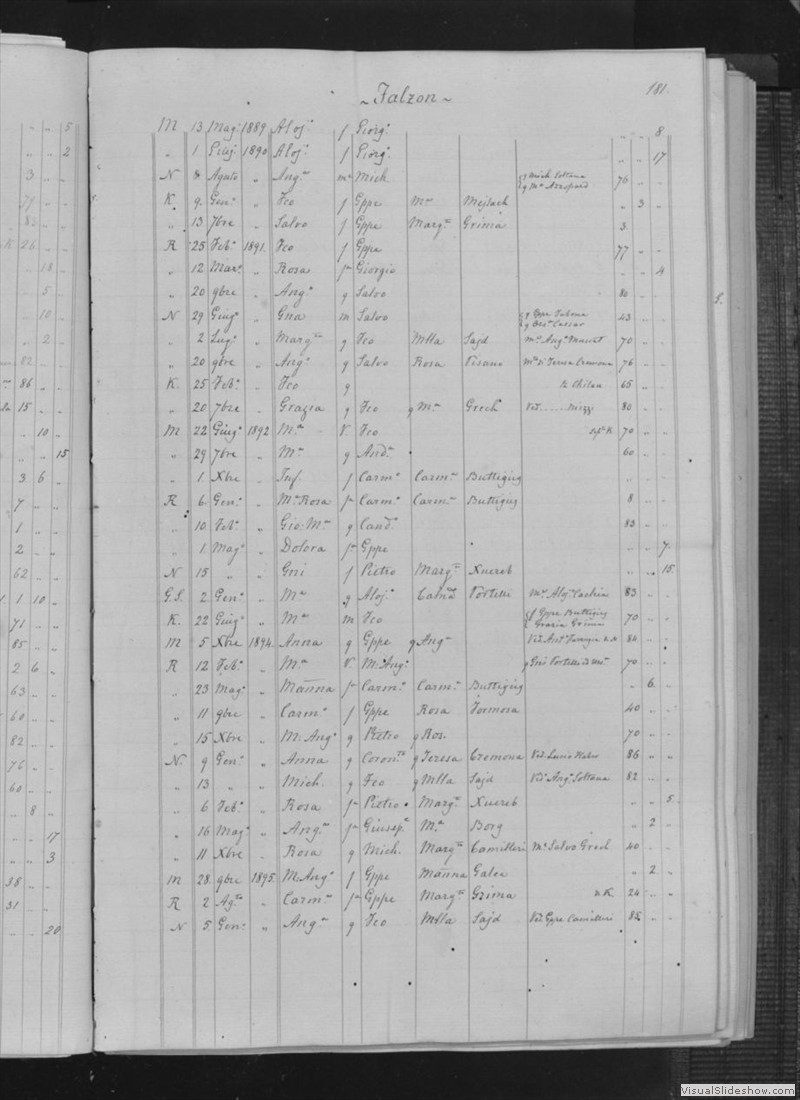 5
2
3
79
83
K 26
18
5
10
2
82
86
15
10
15
3 6
7
1
2
62
1 1 10
71
85
2 6
63
60
82
76
60
8
17
3
38
31
20
~ Falzon ~ 181.
M 13 Mag: 1889 Aloj. f Giorg. " " 8
" 1 Giug. 1890 Aloj. f Giorg. " " 17
N 8 Agato " Ang.a Mich. Mich Sottana 76 " "
K 9 Gen. " Fco f Gppe M.a Mejlach " 3 "
" 13 7bre " Salvo f Gppe Marg.a Grima 3
R 25 Feb. 1891. Fco f Gppe 77 " "
" 12 Mar. " Rosa f.a Giorgio " " 4
" 20 9bre " Ang. g Salvo 80 " "
N 29 Giug. " Gna m Salvo 43 " "
" 2 Lug. " Marg.a g Fco Mlla Sajd M. Ang. Muscat 70 " "
" 20 9bre " Ang. g Salvo Rosa Teresa Cremona 76 " "
K 25 Feb. " Fco g 65 "
" 20 7bre " Grazia g Fco g M.a Grech Ved. Mizzi 80
M 22 Giug. 1892 M.a V. Fco 70 " "
" 29 7bre " M.a g And.a 60 " "
" 1 Xbre " Inf. f Carm. Carm.a Buttigieg " " "
R 6 Gen. " M.a Rosa f.a Carm. Carm.a Buttigieg 8 " "
" 10 Feb. " Gio: M.a g Cand. 83 " "
" 1 Mag. " Dolora f.a Gppe " " 7.
N 15 " " Gni f Pietro Marg.a Xuereb " " 15.
G.S. 2 Gen. " M.a g Aloj. Portelli M. Aloj. 83 " "
K. 22 Giug. " M.a m Fco Gppe Buttigieg Grazia Grima 70 " "
M 5 Xbre 1894. Anna g Gppe g Ang.a 84 " "
R 12 Feb. " M.a V. M. Ang. g Gni Portelli 70 " "
" 23 Mag. " Mānna f.a Carm. Carm.a Buttigieg " 6 "
" 11 9bre " Carm. f Gppe Rosa Formosa 40 " "
" 15 Xbre " M. Ang. g Pietro g Ros. 70 " "
N. 9 Gen. " Anna g Coron.ta g Teresa Cremona Ved. 86 " "
" 13 " " Mich. g Fco g Mlla Sajd Ved. Ang. Sottana 82 " "
" 6 Feb. " Rosa f.a Pietro Marg.a Xuereb " " 5.
" 16 Mag. " Ang.a f.a Giusep. M.a Borg " 2 "
" 11 Xbre " Rosa g Mich. Marg.a Camilleri M. Salvo Grech 40 " "
M 28. 9bre 1895. M. Ang. f Gppe Mānna Galea " 2 "
R 2 Ag. " Carm.a f.a Gppe Marg.a Grima K 24 " "
N 5 Gen. " Ang.a g Fco Mlla Sajd Ved. Gppe Camilleri 85 " "
VisualSlideshow.com